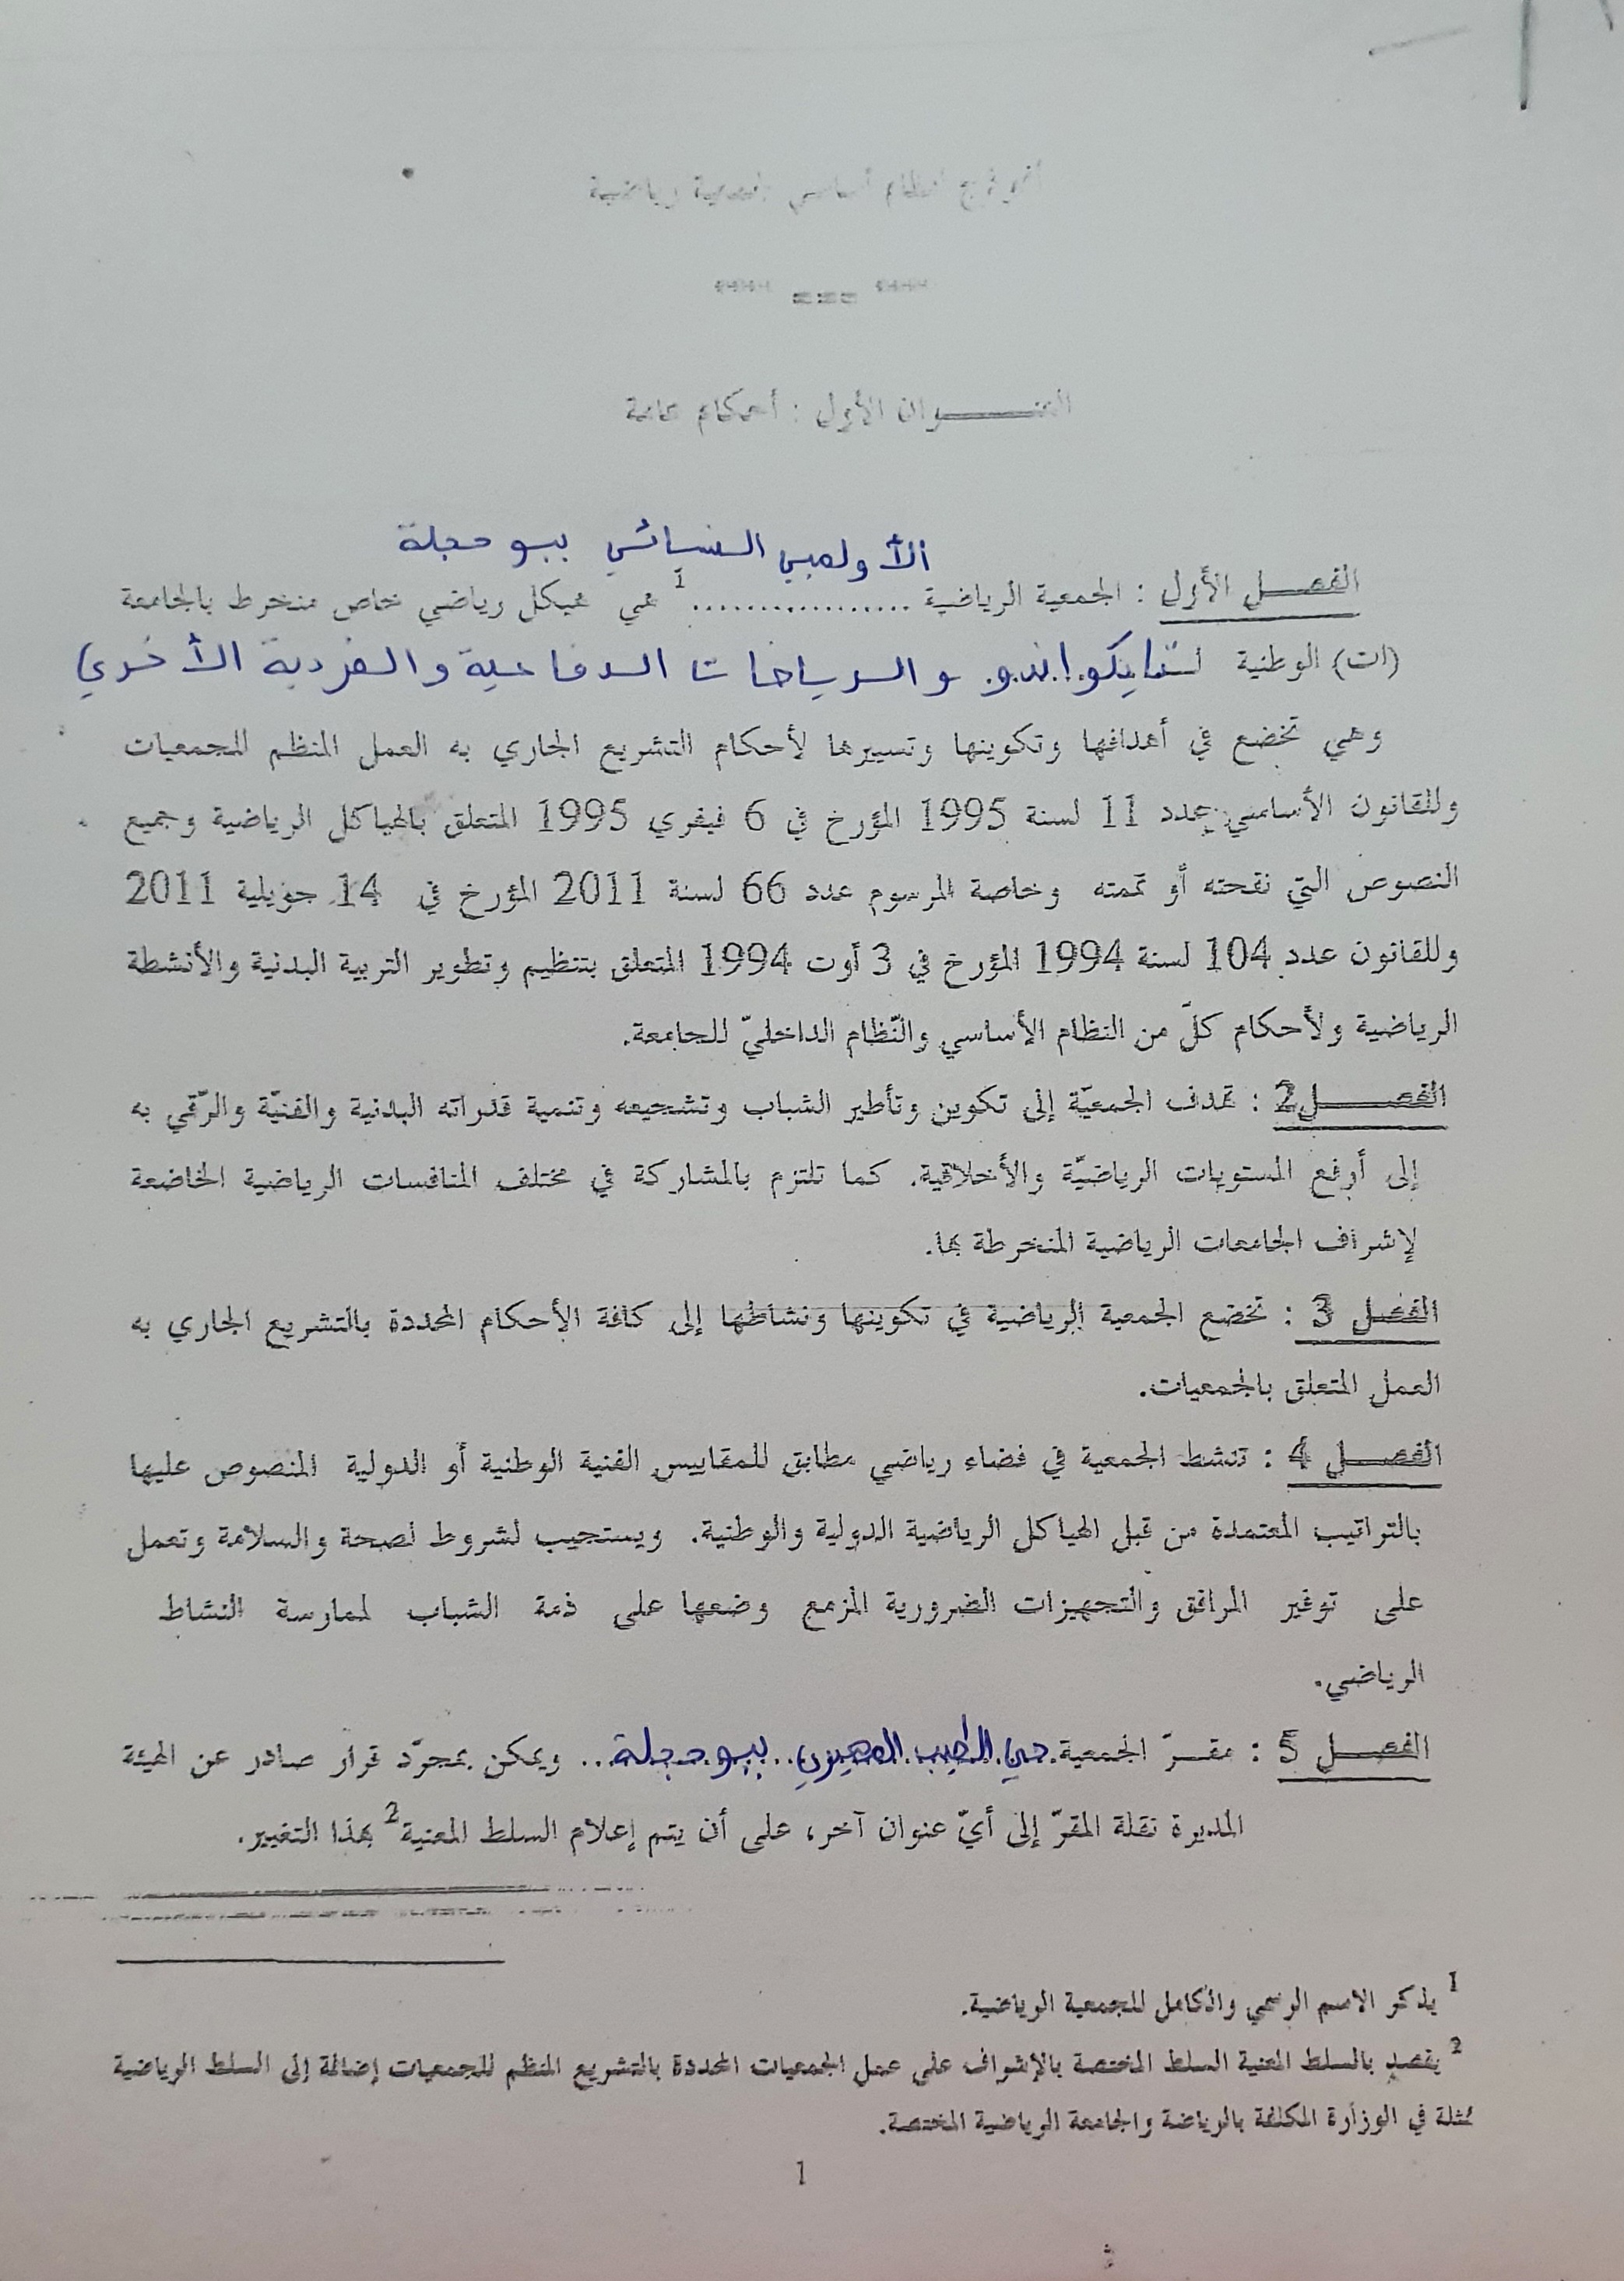 العنـــــوان الأول : أحكام عامة
الأولمبي النسائي ببوحجلة
الفصـــل الأول : الجمعية الرياضية .................1 هي هيكل رياضي خاص منخرط بالجامعة
(ات) الوطنية لتايكواندو والرياضات الدفاعية والفردية الأخرى
وهي تخضع في أهدافها وتكوينها وتسييرها لأحكام التشريع الجاري به العمل المنظم للجمعيات
وللقانون الأساسي عدد 11 لسنة 1995 المؤرخ في 6 فيفري 1995 المتعلق بالهياكل الرياضية وجميع
النصوص التي نقحته أو تممته وخاصة المرسوم عدد 66 لسنة 2011 المؤرخ في 14 جويلية 2011
وللقانون عدد 104 لسنة 1994 المؤرخ في 3 أوت 1994 المتعلق بتنظيم وتطوير التربية البدنية والأنشطة
الرياضية ولأحكام كلّ من النظام الأساسي والنّظام الداخليّ للجامعة.
الفصـــــل2 : تهدف الجمعيّة إلى تكوين وتأطير الشباب وتشجيعه وتنمية قدراته البدنية والفنيّة والرّقي به
إلى أرفع المستويات الرياضيّة والأخلاقية. كما تلتزم بالمشاركة في مختلف المنافسات الرياضية الخاضعة
لإشراف الجامعات الرياضية المنخرطة بها.
الفصل 3 : تخضع الجمعية الرياضية في تكوينها ونشاطها إلى كافة الأحكام المحددة بالتشريع الجاري به
العمل المتعلق بالجمعيات.
الفصـــل 4 : تنشط الجمعية في فضاء رياضي مطابق للمقاييس الفنية الوطنية أو الدولية المنصوص عليها
بالتراتيب المعتمدة من قبل الهياكل الرياضية الدولية والوطنية. ويستجيب لشروط لصحة والسلامة وتعمل
على توفير المرافق والتجهيزات الضرورية المزمع وضعها على ذمة الشباب لممارسة النشاط
الرياضي.
الفصـــل 5 : مقـــرّ الجمعية حي الطيب المهيري ببوحجلة.. ويمكن بمجرّد قرار صادر عن الهيئة
المديرة نقلة المقرّ إلى أيّ عنوان آخر، على أن يتم إعلام السلط المعنية2 بهذا التغيير.
1 يذكر الاسم الرسمي والكامل للجمعية الرياضية.
2 يقصد بالسلط المعنية السلط المختصة بالإشراف على عمل الجمعيات المحددة بالتشريع المنظم للجمعيات إضافة إلى السلط الرياضية
ممثلة في الوزارة المكلفة بالرياضة والجامعة الرياضية المختصة.
1